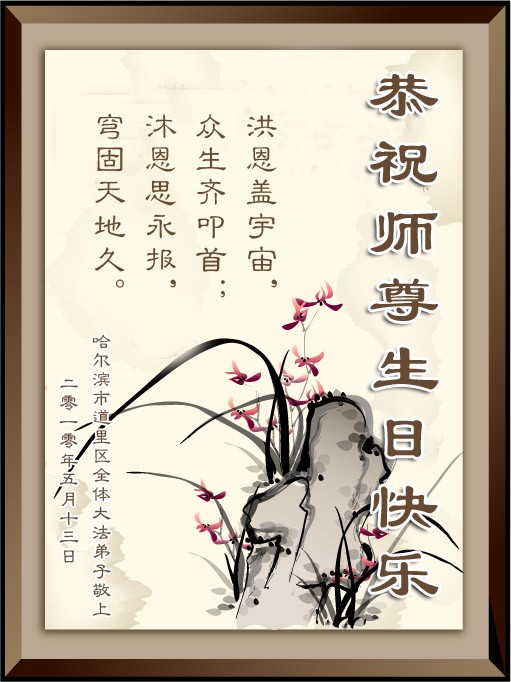 恭祝师尊生日快乐
洪恩盖宇宙，
众生齐叩首；
沐恩思永报，
穹固天地久。
哈尔滨市道里区全体大法弟子敬上
二零一零年五月十三日